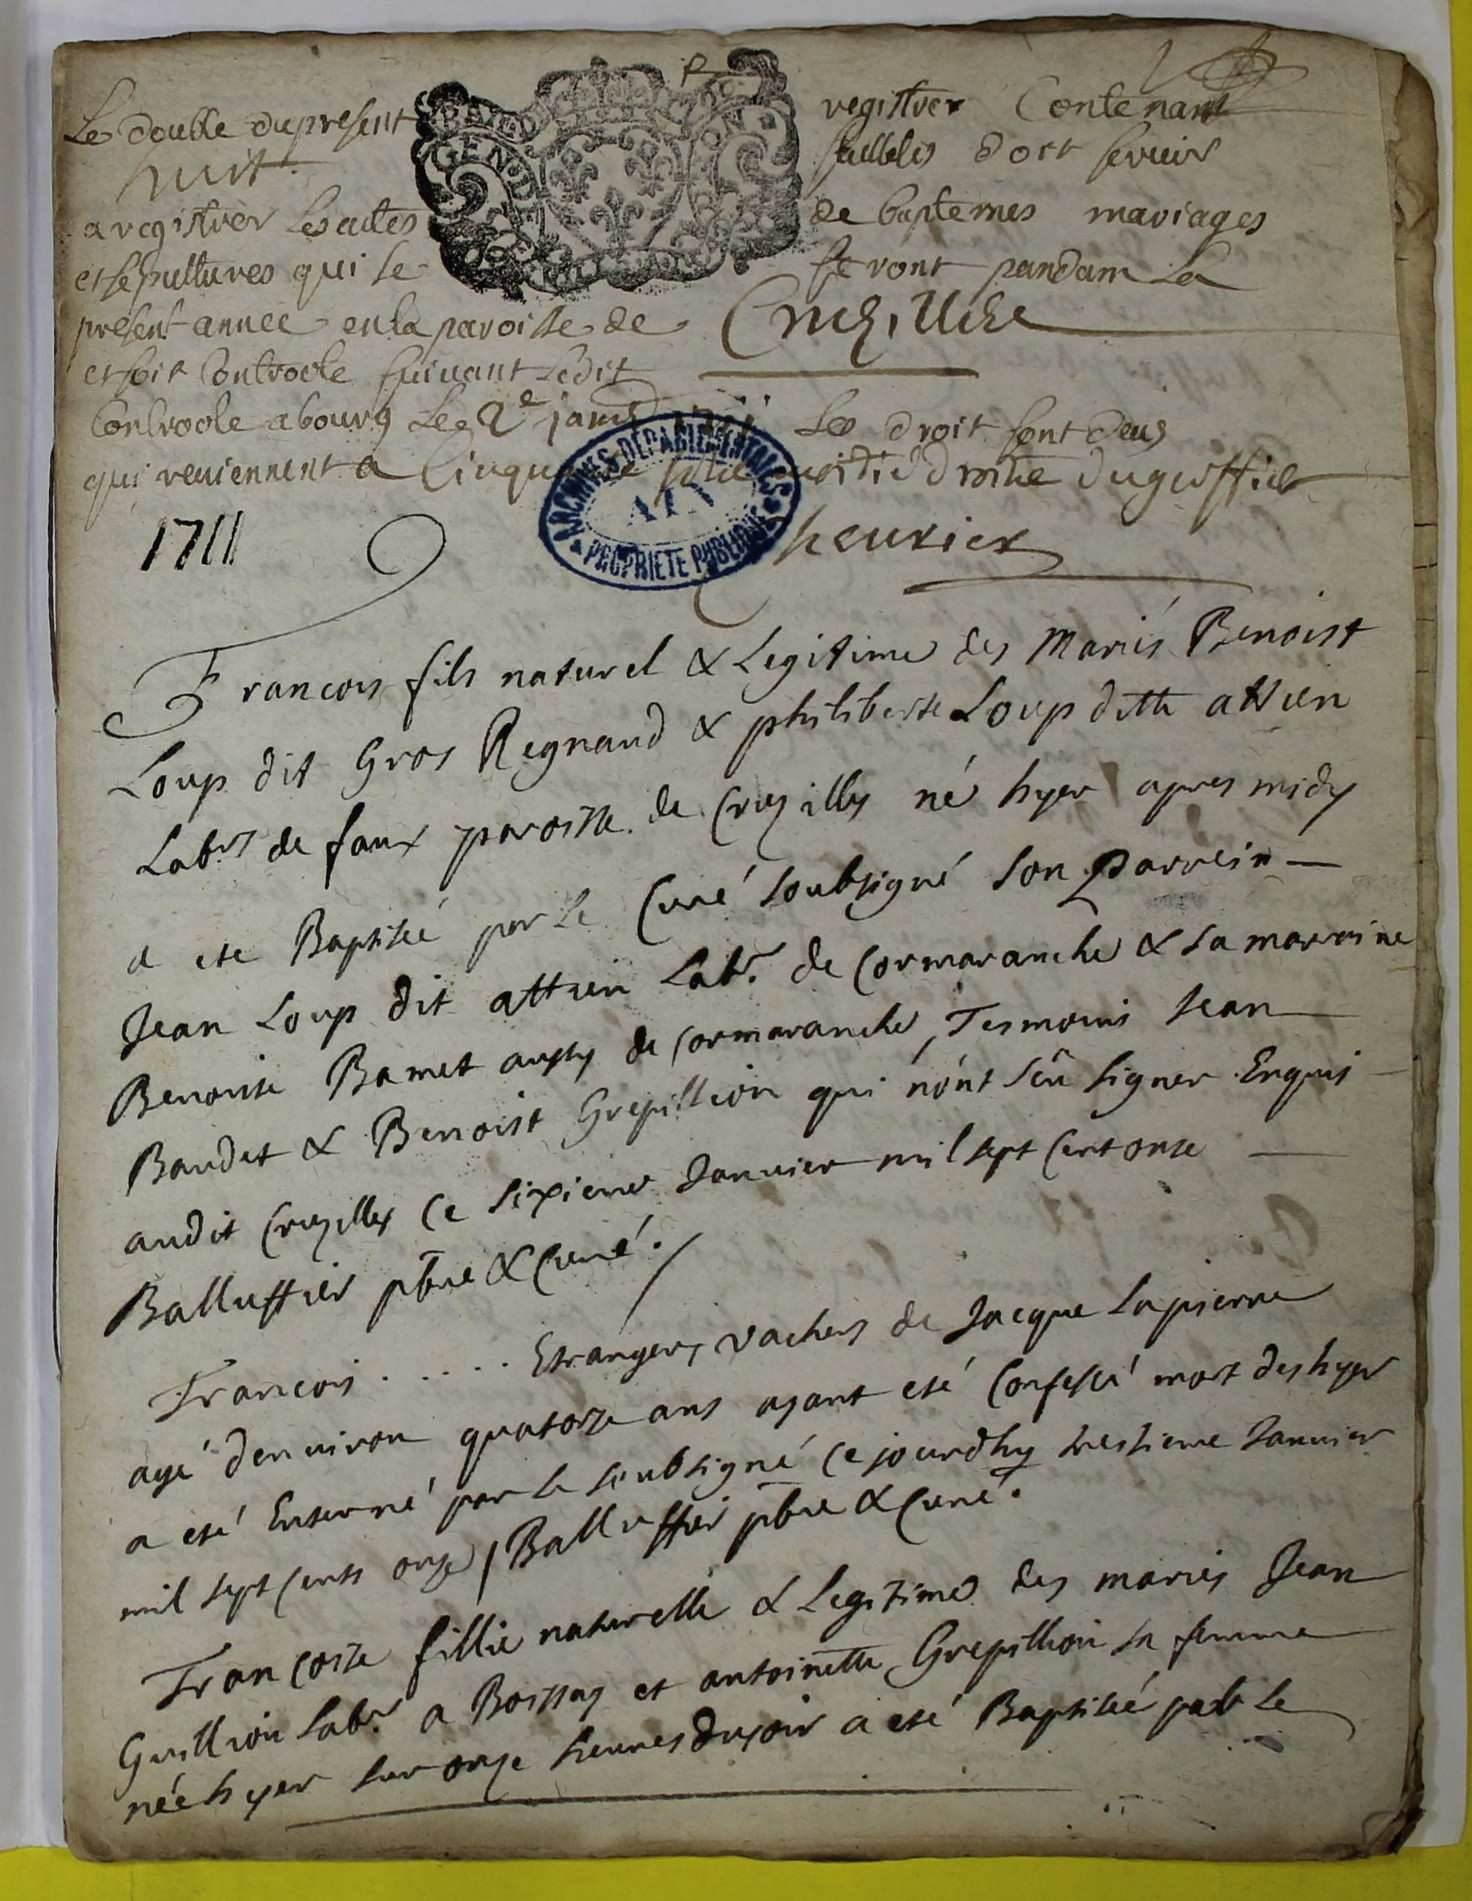 Le double du present registrer Contenant
huit feullets doit servir
a registrer les actes de baptemes mariages
et sepultures qui se feront pandam La
present annee en la paroisse de Cruzillie
et soit Controole suivant Ledit
Controole a bourg Le 2e janv 1711 Les droit sont deus
qui reviennent a Cinquante solz moitié droite du greffier
1711
cheurier
ARCHIVES DÉPARTEMENTALES
AIN
PROPRIÉTÉ PUBLIQUE
GEN DE
Francois fils naturel & Legitime des Mariés Benoist
Loup dit Gros Regnaud & philiberte Loup ditte attien
Labrs de faux paroisse de Cruzilly né hyer apres midy
a ete Baptisé par le Curé soubsigné son parrein
Jean Loup dit attien Labr. de Cormaranche & sa marraine
Benoiste Bamet aussy de Cormaranche, Tesmoins Jean
Baudet & Benoist Grepillion qui n'ont sçû signer Enquis
audit Cruzilles Ce sixieme Janvier mil sept Cent onse
Balluffier pbre & Curé.
Francois .... Etranger, vachers de Jacque Lapierre
agé denviron quatorze ans ayant eté Confessé mort des hyer
a eté Enterré par le soubsigné Ce jourdhuy treshieme Janvier
mil sept Cents onze / Balluffier pbre & Curé.
Francoise fillie naturelle & Legitime des mariés Jean
Guillion Labr. a Boissey et antoinette Grepillion sa femme
née hyer sur onze heures du soir a eté Baptisée par le